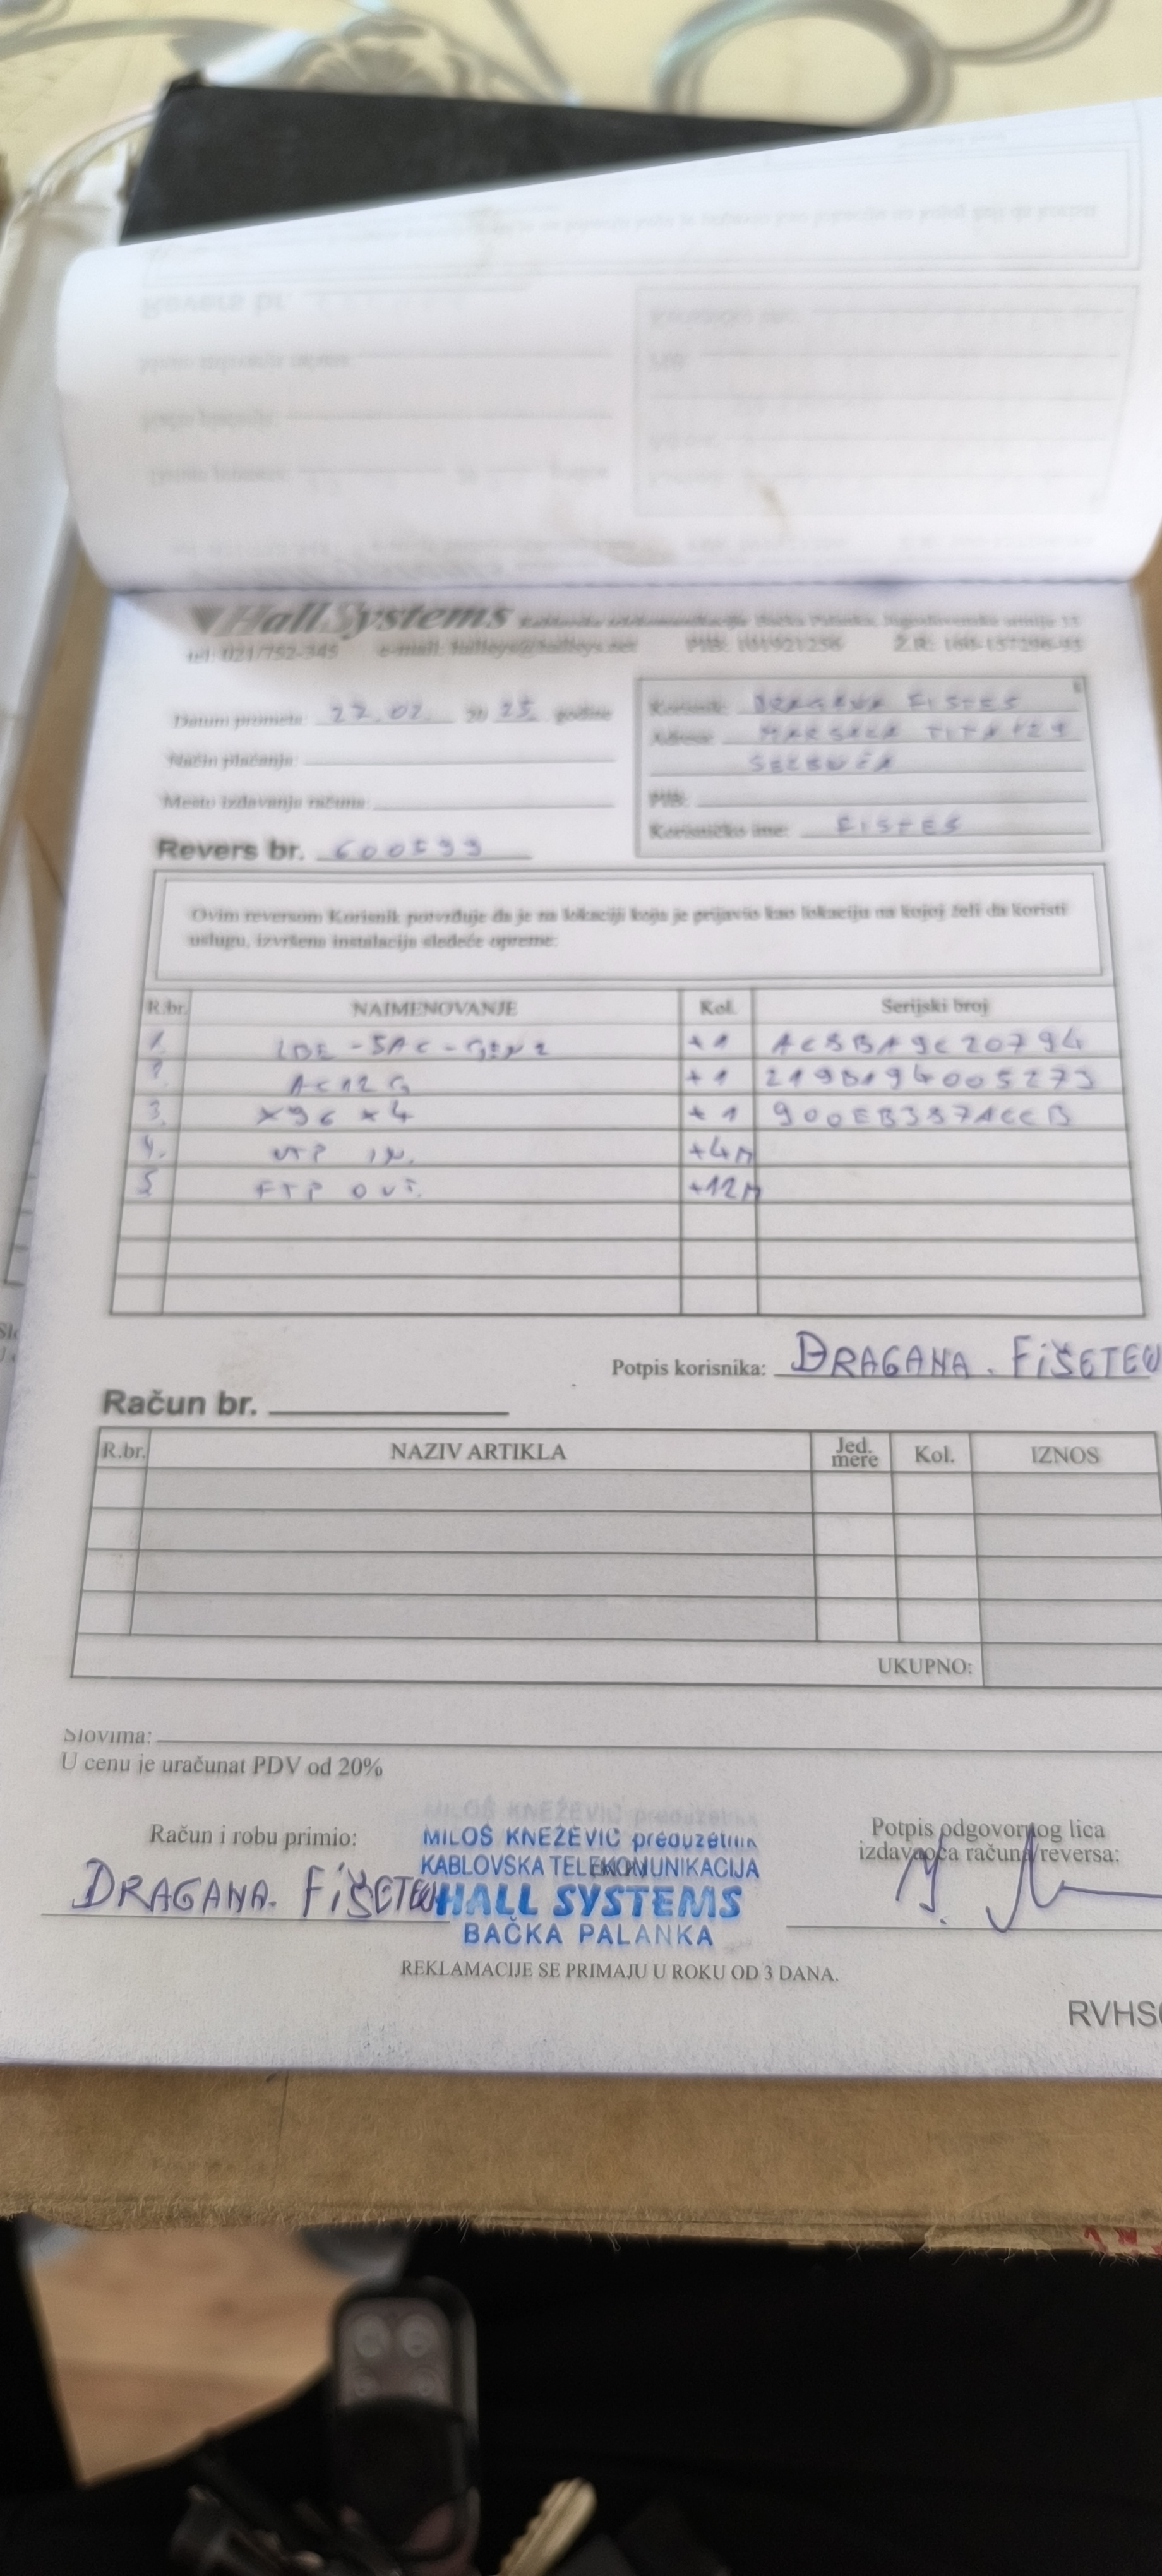 Hall Systems Kablovska telekomunikacija Bačka Palanka, Jugoslovenske armije 11
tel: 021/752-345 e-mail: hallsys@hallsys.net PIB: 101921256 Ž.R.: 160-157296-93
Datum prometa 27.02 20 25 godine
Način plaćanja:
Mesto izdavanja računa:
Revers br. 600599
Korisnik:
Adresa: MARSALA TITA 129
PIB:
Korisničko ime:
Ovim reversom Korisnik potvrđuje da je na lokaciji koju je prijavio kao lokaciju na kojoj želi da koristi
uslugu, izvršena instalacija sledeće opreme:
R.br. NAIMENOVANJE Kol. Serijski broj
1. LBE-5AC-GEN2 +1
2. AC12G +1
3. X96 X4 +1
4. UTP IN. +4M
5 FTP OUT. +12M
Potpis korisnika: DRAGANA. FiŠETEW
Račun br.
R.br. NAZIV ARTIKLA Jed. mere Kol. IZNOS
UKUPNO:
Slovima:
U cenu je uračunat PDV od 20%
Račun i robu primio: DRAGANA. FiŠETEW
MILOŠ KNEŽEVIĆ preduzetnik
KABLOVSKA TELEKOMUNIKACIJA
HALL SYSTEMS
BAČKA PALANKA
Potpis odgovornog lica
izdavaoca računa/reversa:
REKLAMACIJE SE PRIMAJU U ROKU OD 3 DANA.